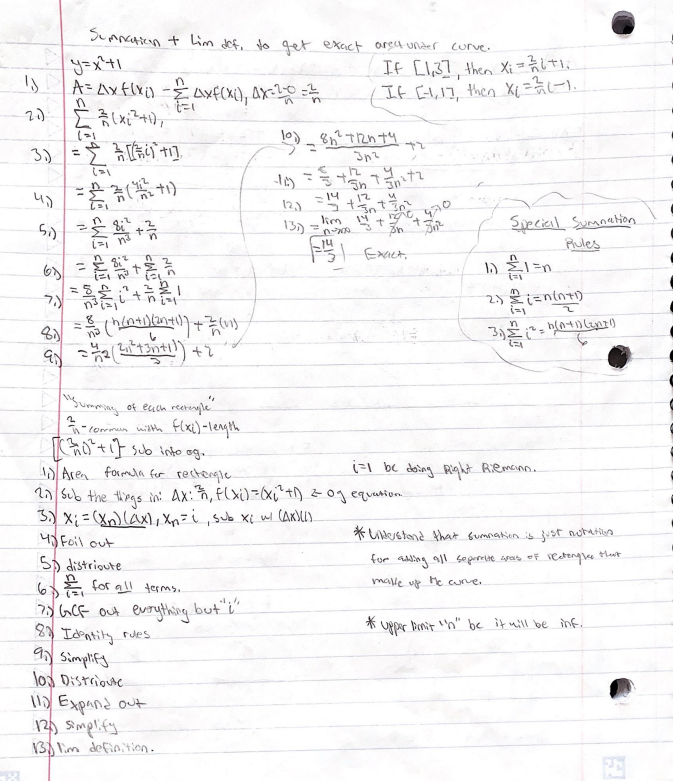 Summation + Lim def. to get exact area under curve.
y=x²+1
If [1,3], then xᵢ = 2/n i+1.
If [-1,1], then xᵢ = 2/n i-1.
1.) A = Δx f(xᵢ) - Σ_{i=1}^{n} Δx f(xᵢ), Δx = 2-0/n = 2/n
2.) Σ_{i=1}^{n} 2/n (xᵢ²+1),
3.) = Σ_{i=1}^{n} 2/n [(2/n i)²+1]
4.) = Σ_{i=1}^{n} 2/n (4i²/n² +1)
5.) = Σ_{i=1}^{n} 8i²/n³ + 2/n
6.) = Σ_{i=1}^{n} 8i²/n³ + Σ_{i=1}^{n} 2/n
7.) = 8/n³ Σ_{i=1}^{n} i² + 2/n Σ_{i=1}^{n} 1
8.) = 8/n³ (n(n+1)(2n+1)/6) + 2/n (n)
9.) = 4/n² (2n²+3n+1/3) + 2
10.) = 8n²+12n+4/3n² + 2
11.) = 8/3 + 12/3n + 4/3n² + 2
12.) = 14/3 + 12/3n + 4/3n²
13.) = lim n→∞ 14/3 + 12/3n →0 + 4/3n² →0
= 14/3 Exact.
Special Summation
Rules
1.) Σ_{i=1}^{n} 1 = n
2.) Σ_{i=1}^{n} i = n(n+1)/2
3.) Σ_{i=1}^{n} i² = n(n+1)(2n+1)/6
"Summing of each rectangle"
2/n - common width f(xᵢ) - length
[(2/n i)²+1] - sub into og.
1.) Area formula for rectangle
i=1 bc doing Right Riemann.
2.) Sub the things in: Δx: 2/n, f(xᵢ) = (xᵢ²+1) ← og equation
3.) xᵢ = (xₙ)(Δx), xₙ = i, sub xᵢ w/ (Δx)(i)
4.) Foil out
5.) distribute
6.) Σ_{i=1}^{n} for all terms.
7.) GCF out everything but "i"
8.) Identity rules
9.) Simplify
10.) Distribute
11.) Expand out
12.) simplify
13.) lim definition.
* Understand that summation is just notation
for adding all separate areas of rectangles that
make up the curve.
* upper limit "n" bc it will be inf.